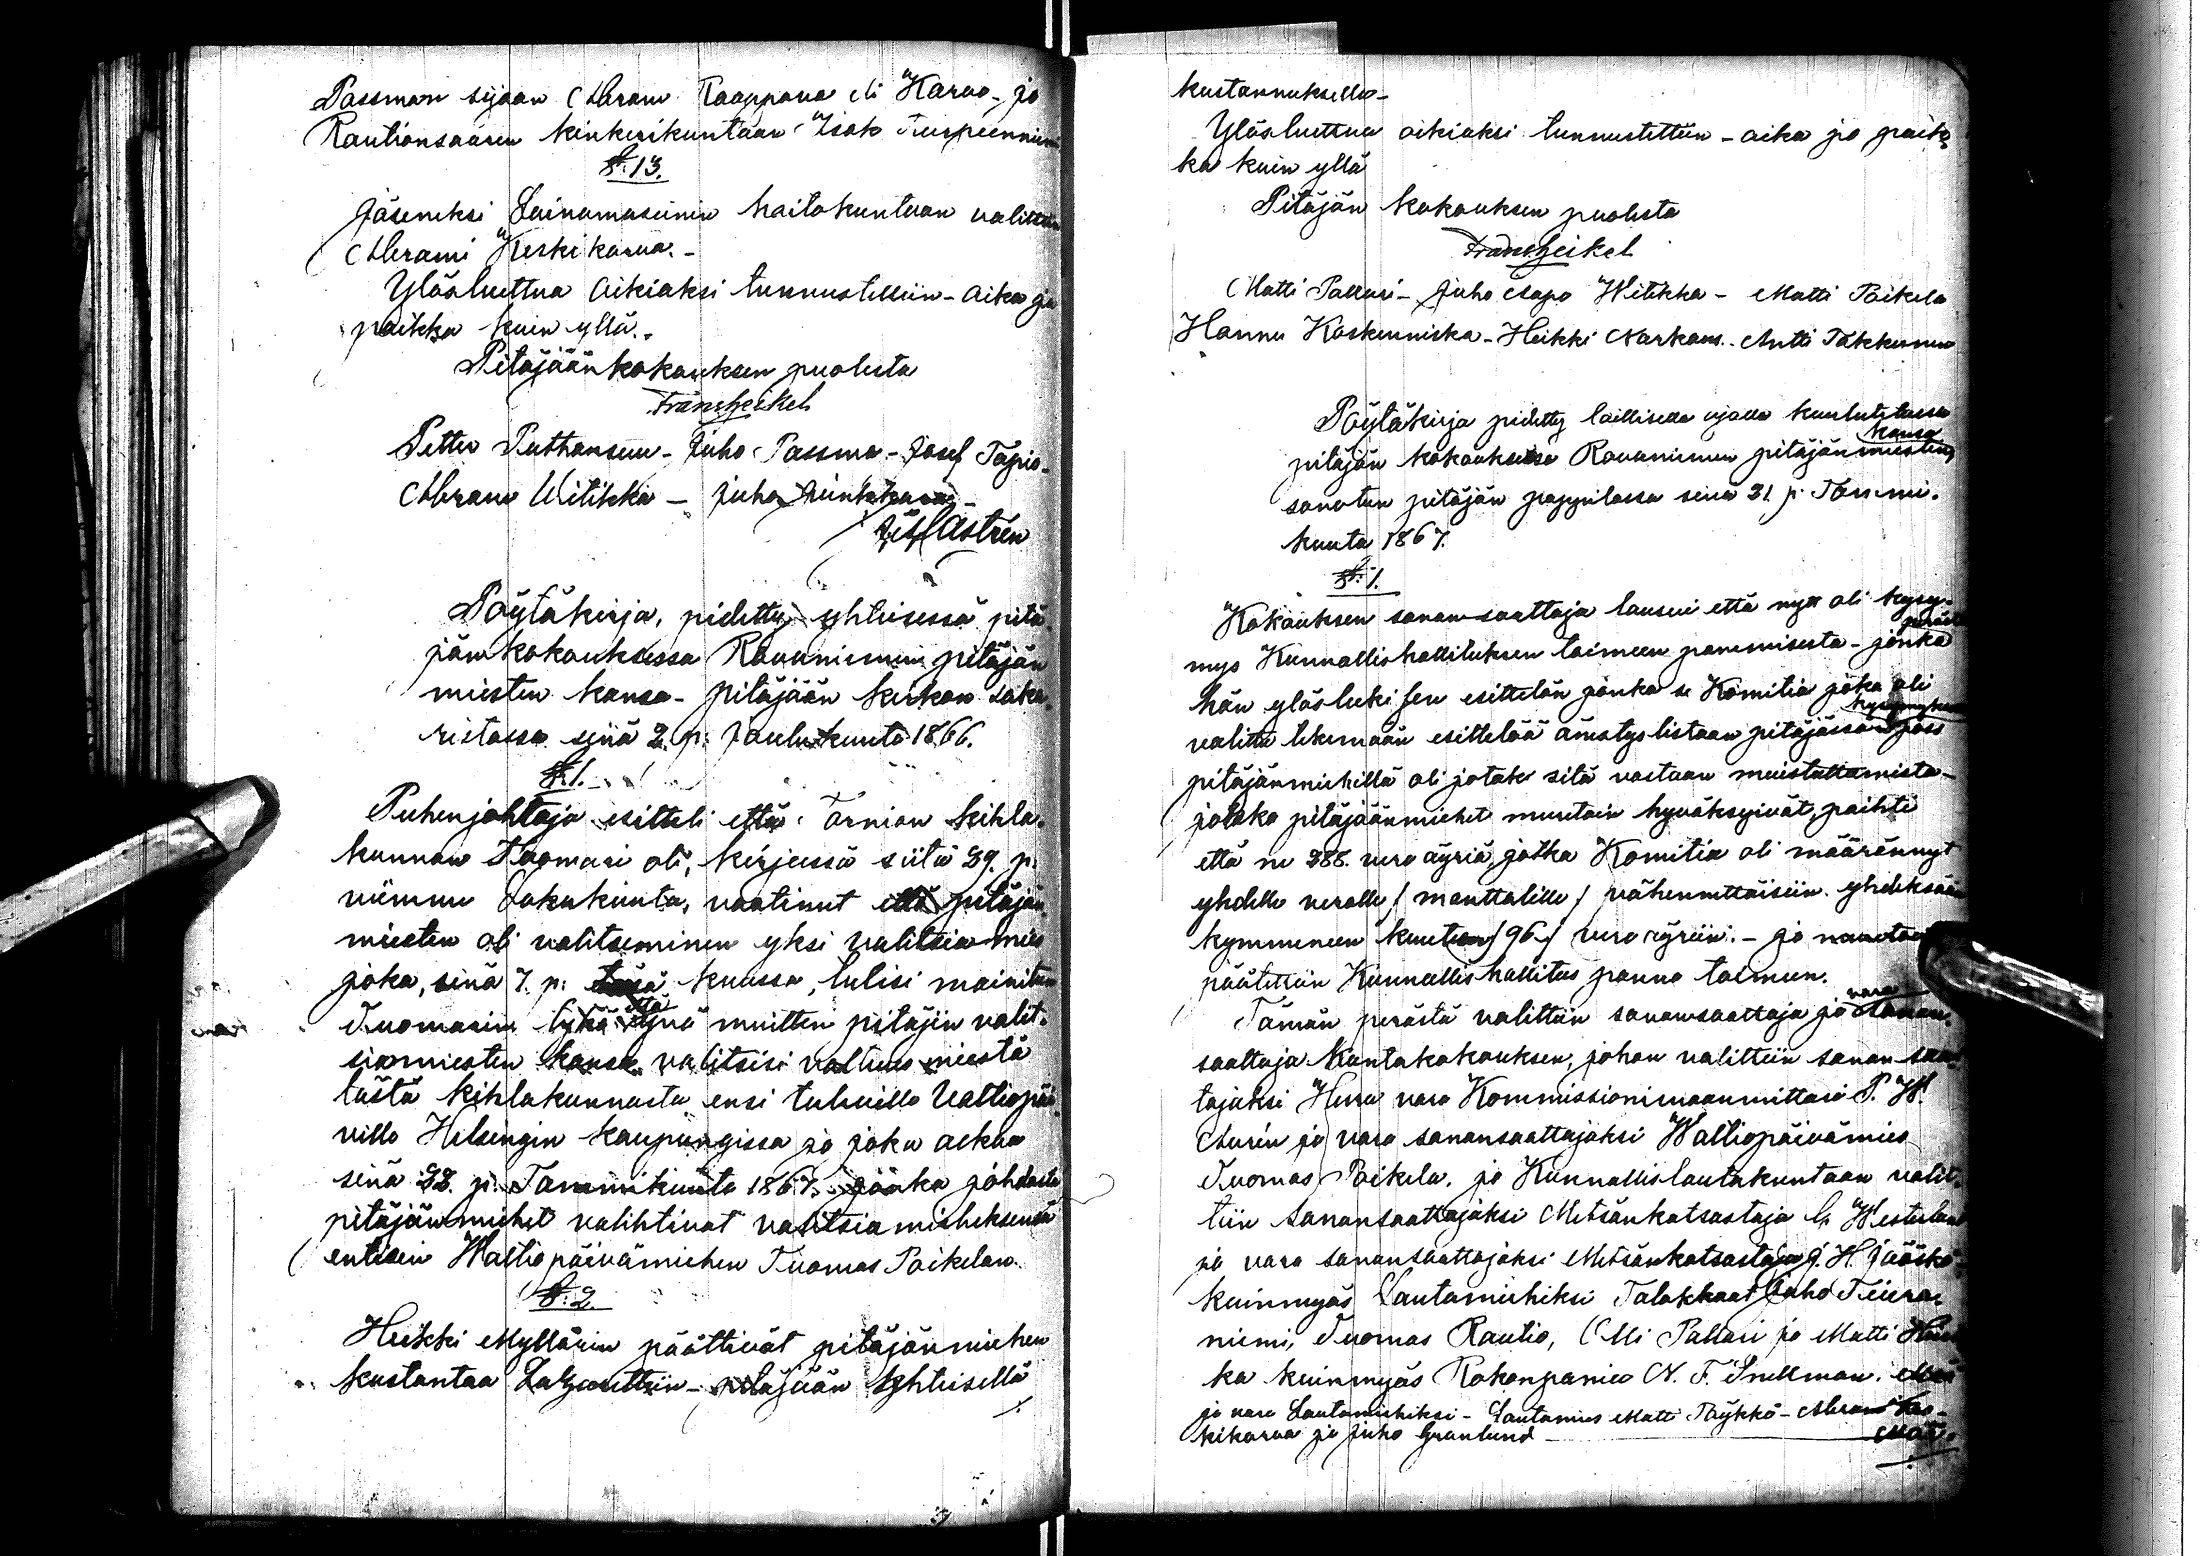 Passman sijaan Abram Kaappana eli Karvo- ja
Rautionsaaren kinkerikuntaan Isak Turpeennie
§. 13.
Jäseneksi Lainamasiinin haitokuntaan valittiin
Abrami Keskikarva.-
Ylösluettua Oikiaksi tunnustettiin- Aika ja
paikka kuin yllä.-
Pitäjään kokouksen puolesta
Frans Heikel
Petter Puthansuu- Juho Passma- Josef Tapio-
Abram Witikka- Juha
Castrén
Pöytäkirja, pidetty yhteisessä pitä
jän kokouksessa Rovaniemen pitäjän
miesten kansa- pitäjään kirkon saka
ristassa sinä 2. p: Joulukuuta 1866.
§. 1.
Puhenjohtaja esitteli että Tornion kihla-
kunnan Tuomari oli, kirjassa siitä 29. p.
viimme Lokakuuta, vaatinut että pitäjän
miesten oli valitseminen yksi valitsia mies
joka, sinä 7. p: tässä kuussa, tulisi mainitun
Tuomarin tykö että muitten pitäjin valit-
siamiesten kansa valitsisi valtuus miestä
tästä kihlakunnasta ensi tulevilla Valtiopäi
villä Helsingin kaupungissa ja joka alkaa
sinä 22. p: Tammikuuta 1867. jonka johdosta
pitäjänmiehet valihtivat valitsia mieheksensä
entisen Waltiopäivämiehen Tuomas Poikelan.
§. 2.
Heikki Myllärin päättivät pitäjänmiehen
kustantaa Lazarettiin- pitäjään yhteisellä
kustannuksella-
Ylösluettua oikiaksi tunnustettiin- aika ja paik
ka kuin yllä
Pitäjän kokouksen puolesta
Frans Heikel
Matti Pallari- Juho Aapo Witikka- Matti Poikela
Hannu Koskenniska- Heikki Narkaus- Antti Takkunen
Pöytäkirja pidetty laillisella ajalla kuulutetussa
kansa
pitäjän kokouksessa Rovaniemen pitäjän miesten
sanotun pitäjän pappilassa sinä 21 p: Tammi-
kuuta 1867.
§. 1.
Kokouksen sanansaattaja lausui että nyt oli kysy-
perästä
mys Kunnallishallituksen toimeen panemisesta- jonka
hän ylösluki sen esittelön jonka se Komitia joka oli
kysymyksessä
valittu tekemään esittelöä äänestyslistaan pitäjässä
pitäjänmiehillä oli jotaki sitä vastaan muistuttamista-
jotoko pitäjäänmiehet muutoin hyväksyivät, paihti
että ne 288. vero äyriä, jotka Komitia oli määrännyt
yhdelle veralle / manttalille / vähennettäisiin yhdeksään
kymmeneen kuuteen / 96 / vero äyriin.- ja
päätettiin Kunnallishallitus panna toimeen.
vara
Tämän perästä valittiin sanansaattaja ja sanan-
saattaja Kuntakokouksen, johon valittiin sanan saat
tajaksi Herra vara Kommissionimaanmittari P. W.
Aurén ja vara sanansaattajaksi Waltiopäivämies
Tuomas Poikela. ja Kunnallislautakuntaan valit-
tiin sanansaattajaksi Metsänkatsastaja G. Westerlund
ja vara sanansaattajaksi Metsänkatsastaja J. H. Jääskö-
kuinmyös Lautamiehiksi Talokkaat Juho Teura-
niemi, Tuomas Rautio, Olli Pallari ja Matti
ka kuinmyös Kokonpanio N. F. Snellman.
ja vara Lautamiehiksi- Lautamies Matti Pöykkö- Abram Kes-
kikarva ja Juho Granlund